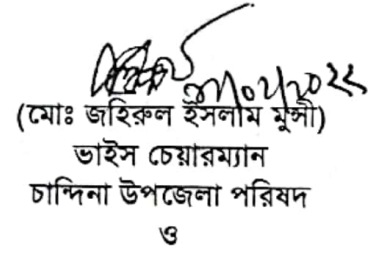 (মোঃ জহিরুল ইসলাম মুন্সী)
ভাইস চেয়ারম্যান
চান্দিনা উপজেলা পরিষদ
ও